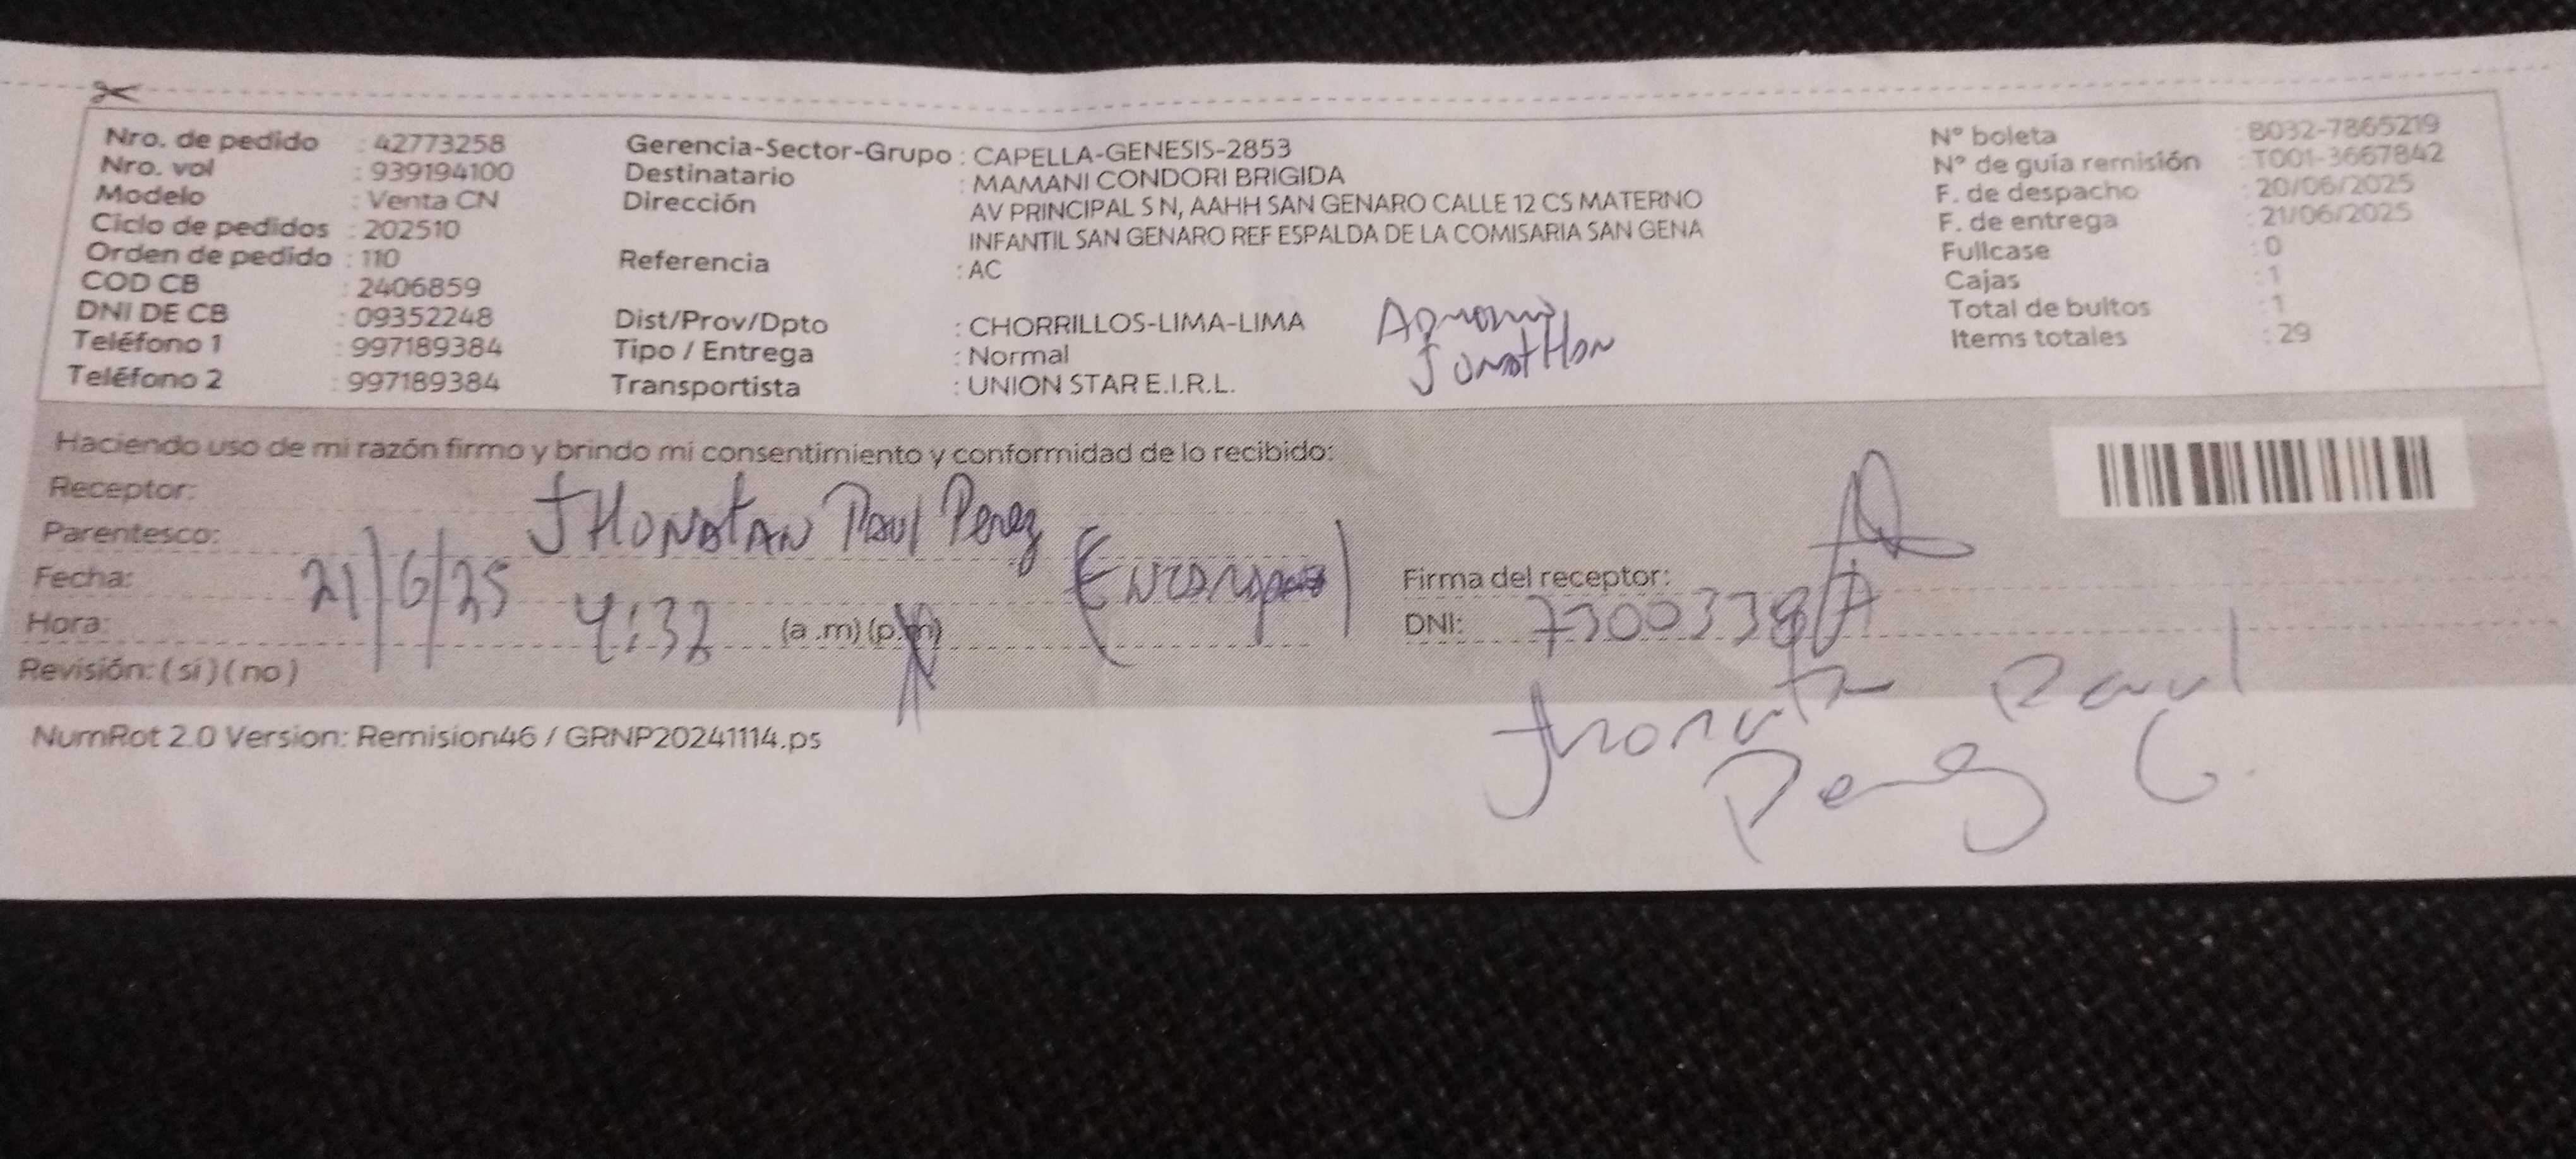 Nro. de pedido : 42773258
Nro. vol : 939194100
Modelo : Venta CN
Ciclo de pedidos : 202510
Orden de pedido : 110
COD CB : 2406859
DNI DE CB : 09352248
Teléfono 1 : 997189384
Teléfono 2 : 997189384
Gerencia-Sector-Grupo : CAPELLA-GENESIS-2853
Destinatario : MAMANI CONDORI BRIGIDA
Dirección AV PRINCIPAL S N, AAHH SAN GENARO CALLE 12 CS MATERNO
INFANTIL SAN GENARO REF ESPALDA DE LA COMISARIA SAN GENA
Referencia : AC
Dist/Prov/Dpto : CHORRILLOS-LIMA-LIMA
Tipo / Entrega : Normal
Transportista : UNION STAR E.I.R.L.
JonatHan
N° boleta : B032-7865219
N° de guía remisión : T001-3667842
F. de despacho : 20/06/2025
F. de entrega : 21/06/2025
Fullcase : 0
Cajas : 1
Total de bultos : 1
Items totales : 29
Haciendo uso de mi razón firmo y brindo mi consentimiento y conformidad de lo recibido:
Receptor: JHONATAN PAUL Perez
Parentesco:
Fecha: 21/6/25
Hora: 4:32 (a .m) (p.m)
Revisión: ( si ) ( no )
Firma del receptor:
DNI: 73003387
Jhonatan Paul
Perez C.
NumRot 2.0 Version: Remision46 / GRNP20241114.ps